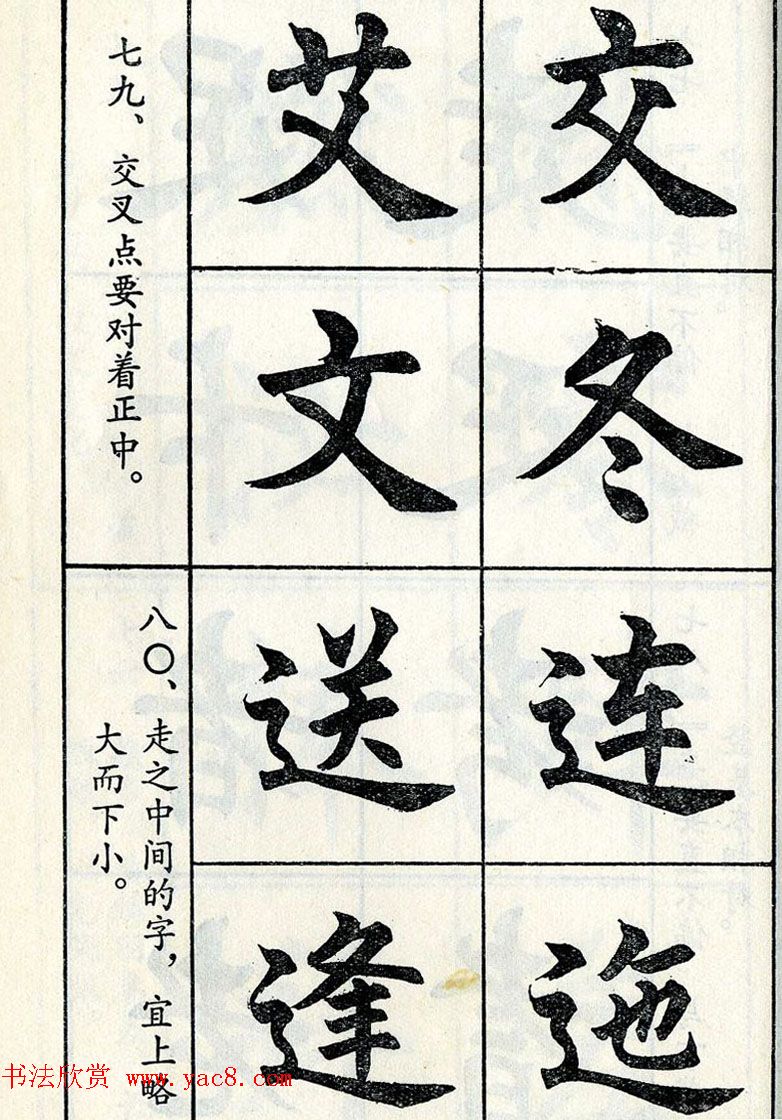 交
艾
冬
文
七九、交叉点要对着正中。
连
送
迤
逢
八〇、走之中间的字，宜上略
大而下小。
书法欣赏 www.yac8.com